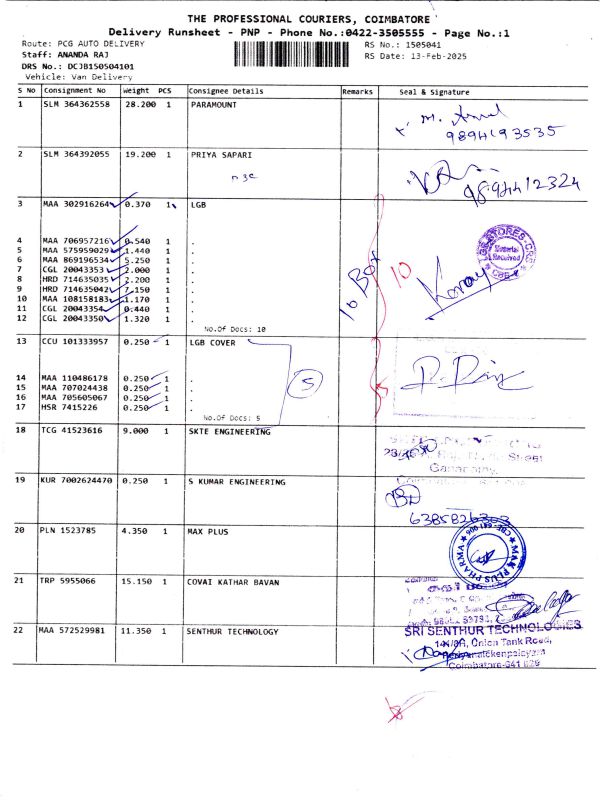 THE PROFESSIONAL COURIERS, COIMBATORE
Delivery Runsheet - PNP - Phone No.:0422-3505555 - Page No.:1
Route: PCG AUTO DELIVERY
RS No.: 1505041
Staff: ANANDA RAJ
RS Date: 13-Feb-2025
DRS No.: DCJB150504101
Vehicle: Van Delivery
S No Consignment No Weight PCS Consignee Details Remarks Seal & Signature
1 SLM 364362558 28.200 1 PARAMOUNT
9894193535
2 SLM 364392055 19.200 1 PRIYA SAPARI
9894412324
3 MAA 302916264 0.370 1 LGB
4 MAA 706957216 0.540 1 .
5 MAA 575959029 1.440 1 .
6 MAA 869196534 5.250 1 .
7 CGL 20043353 2.000 1 .
8 HRD 714635035 2.200 1 .
9 HRD 714635042 7.150 1 .
10 MAA 108158183 1.170 1 .
11 CGL 20043354 0.440 1 .
12 CGL 20043350 1.320 1 .
No.Of Docs: 10
10 Box
10
LGB STORES-CBE
Material Received
13 CCU 101333957 0.250 1 LGB COVER
14 MAA 110486178 0.250 1 .
15 MAA 707024438 0.250 1 .
16 MAA 705605067 0.250 1 .
17 HSR 7415226 0.250 1 .
No.Of Docs: 5
5
18 TCG 41523616 9.000 1 SKTE ENGINEERING
Street
Ganapathy,
19 KUR 7002624470 0.250 1 S KUMAR ENGINEERING
20 PLN 1523785 4.350 1 MAX PLUS
MAX PLUS PHARMA
CBE-641 006
21 TRP 5955066 15.150 1 COVAI KATHAR BAVAN
22 MAA 572529981 11.350 1 SENTHUR TECHNOLOGY
SRI SENTHUR TECHNOLOGIES
Onion Tank Road,
Coimbatore-641 029